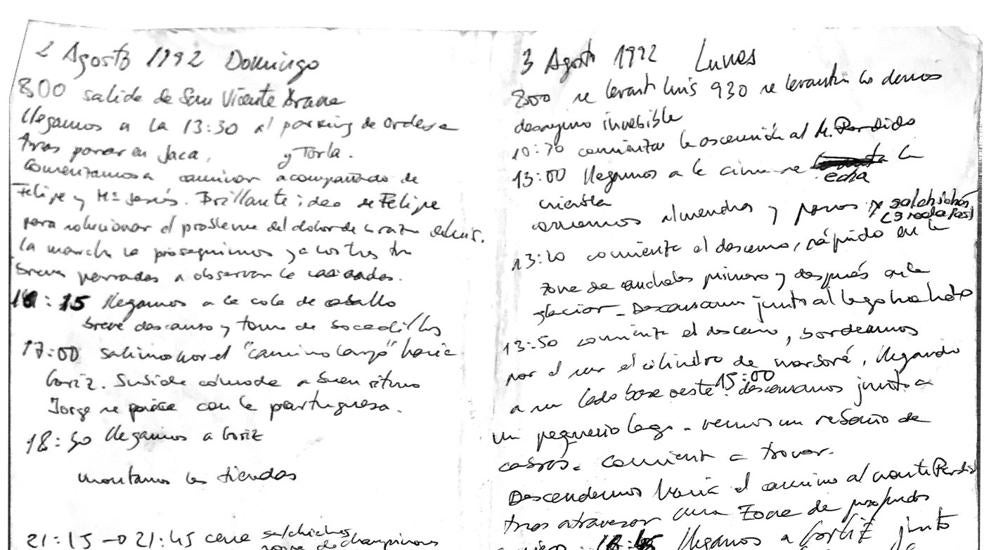 2 Agosto 1992 Domingo
800 salida de San Vicente
llegamos a la 13:30 al parking de Ordesa
tras parar en Jaca, y Torla.
Comenzamos a caminar acompañado de
Felipe y Mª Jesús. Brillante idea de Felipe
para solucionar el problema del dolor de
la marcha la proseguimos ya los tres
breves paradas a observar la cascadas.
:15 llegamos a la cola de caballo
breve descanso y toma de bocadillos
17:00 salimos por el "camino largo" hacia
Goriz. Subida cómoda a buen ritmo
Jorge se pica con la portuguesa.
18:30 llegamos a Goriz
montamos las tiendas
21:15 → 21:45 cena salchichas
sopa de champiñones
3 Agosto 1992 Lunes
800 se levanta Luis 930 se levantan lo demas
desayuno invisible
10:30 comienza la ascensión al M. Perdido
13:00 llegamos a la cima se echa la
niebla
comemos almendras y pasas y salchichón
13:20 comienza el descenso, rápido en la
zona de canchales primero y después en la
glaciar - Descansamos junto al lago helado
13:50 comienza el descenso, bordeamos
por el sur el cilindro de marboré, llegando
a un lado base oeste 15:00 descansamos junto a
un pequeño lago - vemos un rebaño de
cabras. Comienza a tronar.
Descendemos hacia el camino al monte Perdido
tras atravesar una zona de profundos
llegamos a Goriz junto